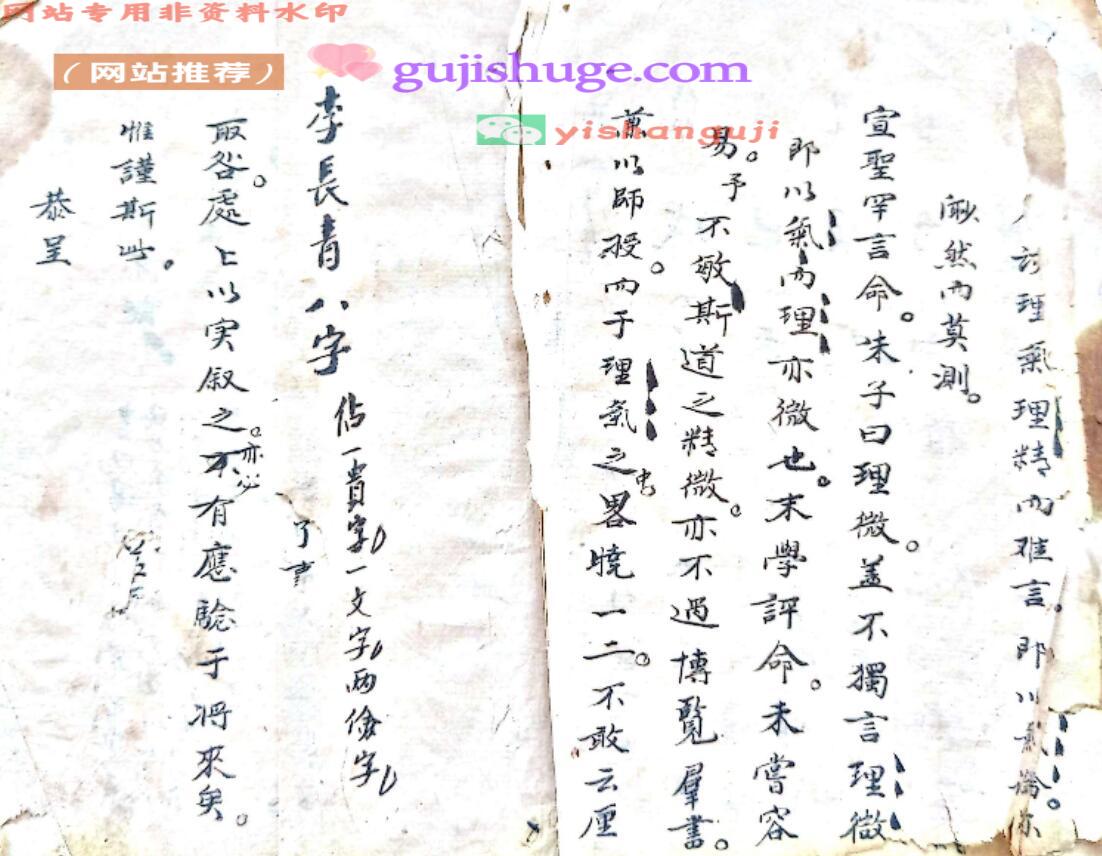 网站专用非资料水印
（网站推荐）
gujishuge.com
yishanguji
理氣理精而难言。即以氣論。亦
渺然而莫測。
宣聖罕言命。朱子曰理微。盖不獨言理微
即以氣而理亦微也。末學評命。未嘗容
易。予不敏斯道之精微。亦不過博覽羣書。
兼以師授。而于理氣之中畧曉一二。不敢云厘
李長青八字
佔一貴字一文字两
了事
取咎處上以实叙之。亦必有應驗于将來矣。
惟謹斯此。
恭呈